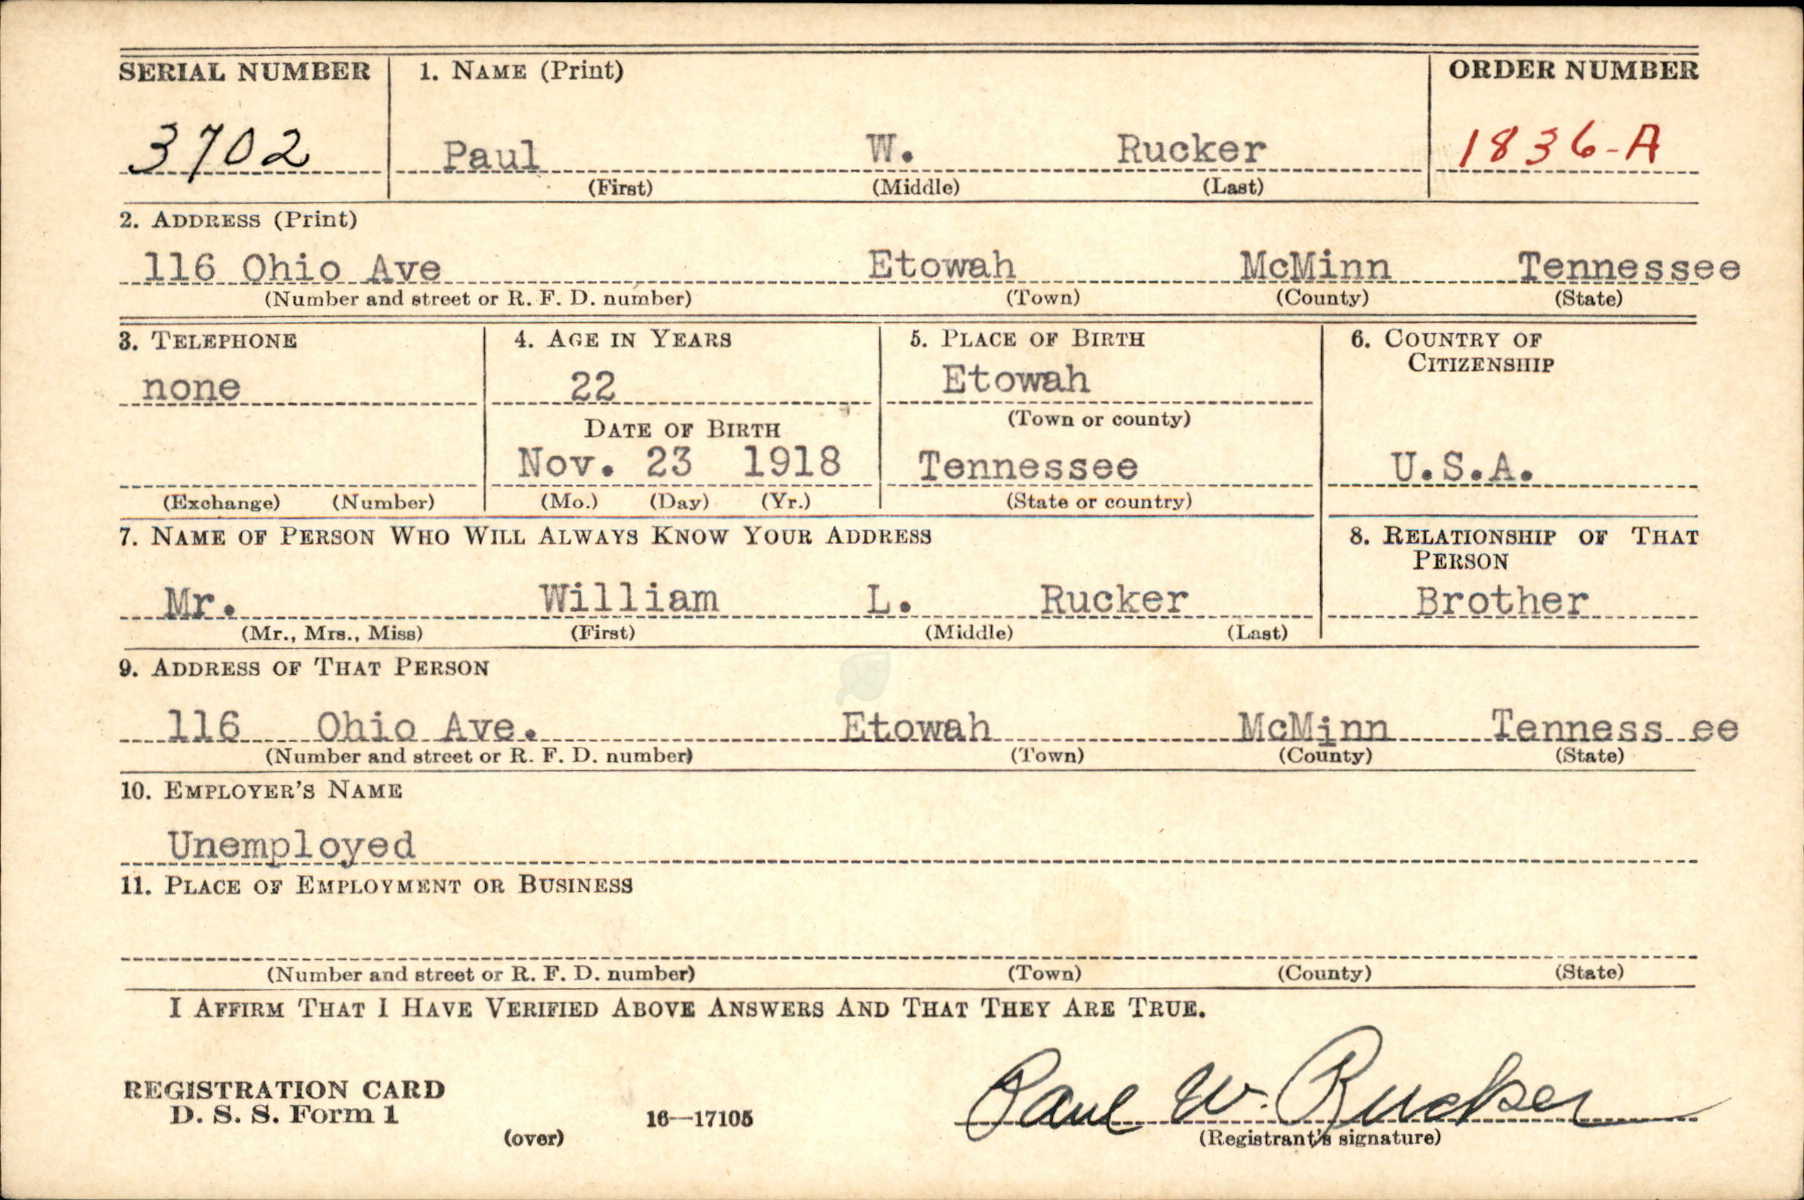 SERIAL NUMBER 1. NAME (Print) ORDER NUMBER
3702 Paul W. Rucker 1836-A
(First) (Middle) (Last)
2. ADDRESS (Print)
116 Ohio Ave Etowah McMinn Tennessee
(Number and street or R. F. D. number) (Town) (County) (State)
3. TELEPHONE 4. AGE IN YEARS 5. PLACE OF BIRTH 6. COUNTRY OF CITIZENSHIP
none 22 Etowah
DATE OF BIRTH (Town or county)
Nov. 23 1918 Tennessee U.S.A.
(Exchange) (Number) (Mo.) (Day) (Yr.) (State or country)
7. NAME OF PERSON WHO WILL ALWAYS KNOW YOUR ADDRESS 8. RELATIONSHIP OF THAT PERSON
Mr. William L. Rucker Brother
(Mr., Mrs., Miss) (First) (Middle) (Last)
9. ADDRESS OF THAT PERSON
116 Ohio Ave. Etowah McMinn Tenness ee
(Number and street or R. F. D. number) (Town) (County) (State)
10. EMPLOYER'S NAME
Unemployed
11. PLACE OF EMPLOYMENT OR BUSINESS
(Number and street or R. F. D. number) (Town) (County) (State)
I AFFIRM THAT I HAVE VERIFIED ABOVE ANSWERS AND THAT THEY ARE TRUE.
REGISTRATION CARD
D. S. S. Form 1 16—17105 Paul W. Rucker
(over) (Registrant's signature)